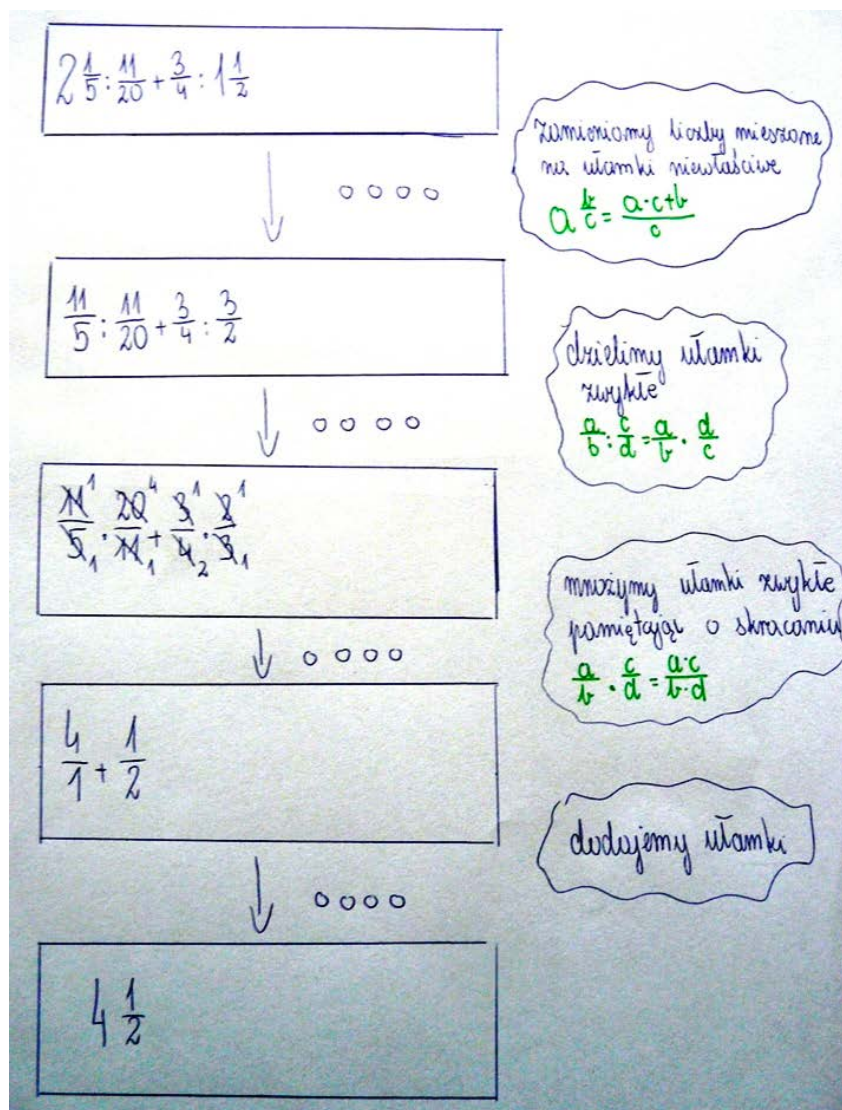 2 1/5 : 11/20 + 3/4 : 1 1/2
zamieniamy liczby mieszane
na ułamki niewłaściwe
a b/c = a·c+b/c
11/5 : 11/20 + 3/4 : 3/2
dzielimy ułamki
zwykłe
a/b : c/d = a/b · d/c
11^1/5_1 · 20^4/11_1 + 3^1/4_2 · 2^1/3_1
mnożymy ułamki zwykłe
pamiętając o skracaniu
a/b · c/d = a·c/b·d
4/1 + 1/2
dodajemy ułamki
4 1/2